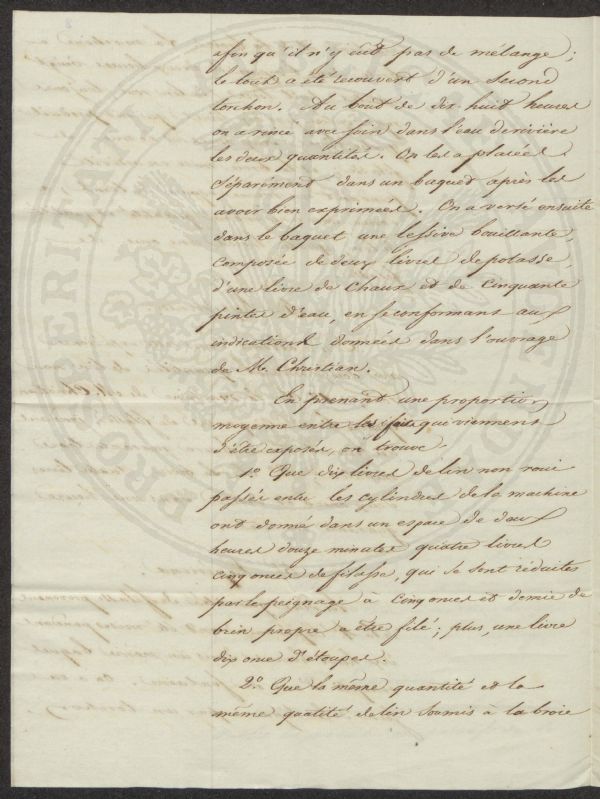 afin qu'il n'y eut pas de mélange;
le tout a été recouvert d'un second
torchon. Au bout de dix huit heures
on a rincé avec soin dans l'eau de rivière
les deux quantités. On les a placées
séparément dans un baquet après les
avoir bien exprimées. On a versé ensuite
dans le baquet une lessive bouillante,
composée de deux livres de potasse,
d'une livre de Chaux et de Cinquante
pintes d'eau, en se conformant aux
indications données dans l'ouvrage
de Mr. Christian.
En prenant une proportion
moyenne entre les faits qui viennent
d'être exposés, on trouve
1.º Que dix livres de lin non roui
passées entre les cylindres de la machine
ont donné dans un espace de deux
heures douze minutes quatre livres
cinq onces de filasse, qui se sont réduites
par le peignage à cinq onces et demie de
brin propre a être filé; plus, une livre
dix once d'étoupes.
2.º Que la même quantité et la
même qualité de lin soumis à la broie
PROSPERITATI PUBLICAE